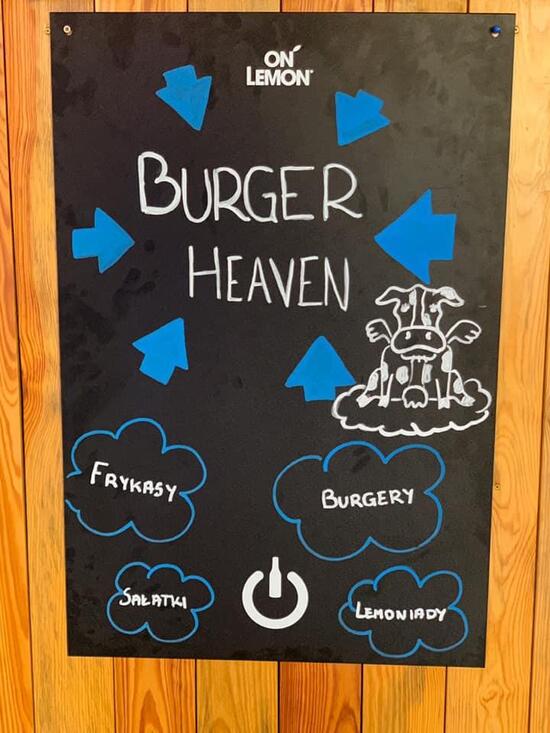 ON
LEMON
BURGER
HEAVEN
FRYKASY
BURGERY
SAŁATKI
LEMONIADY